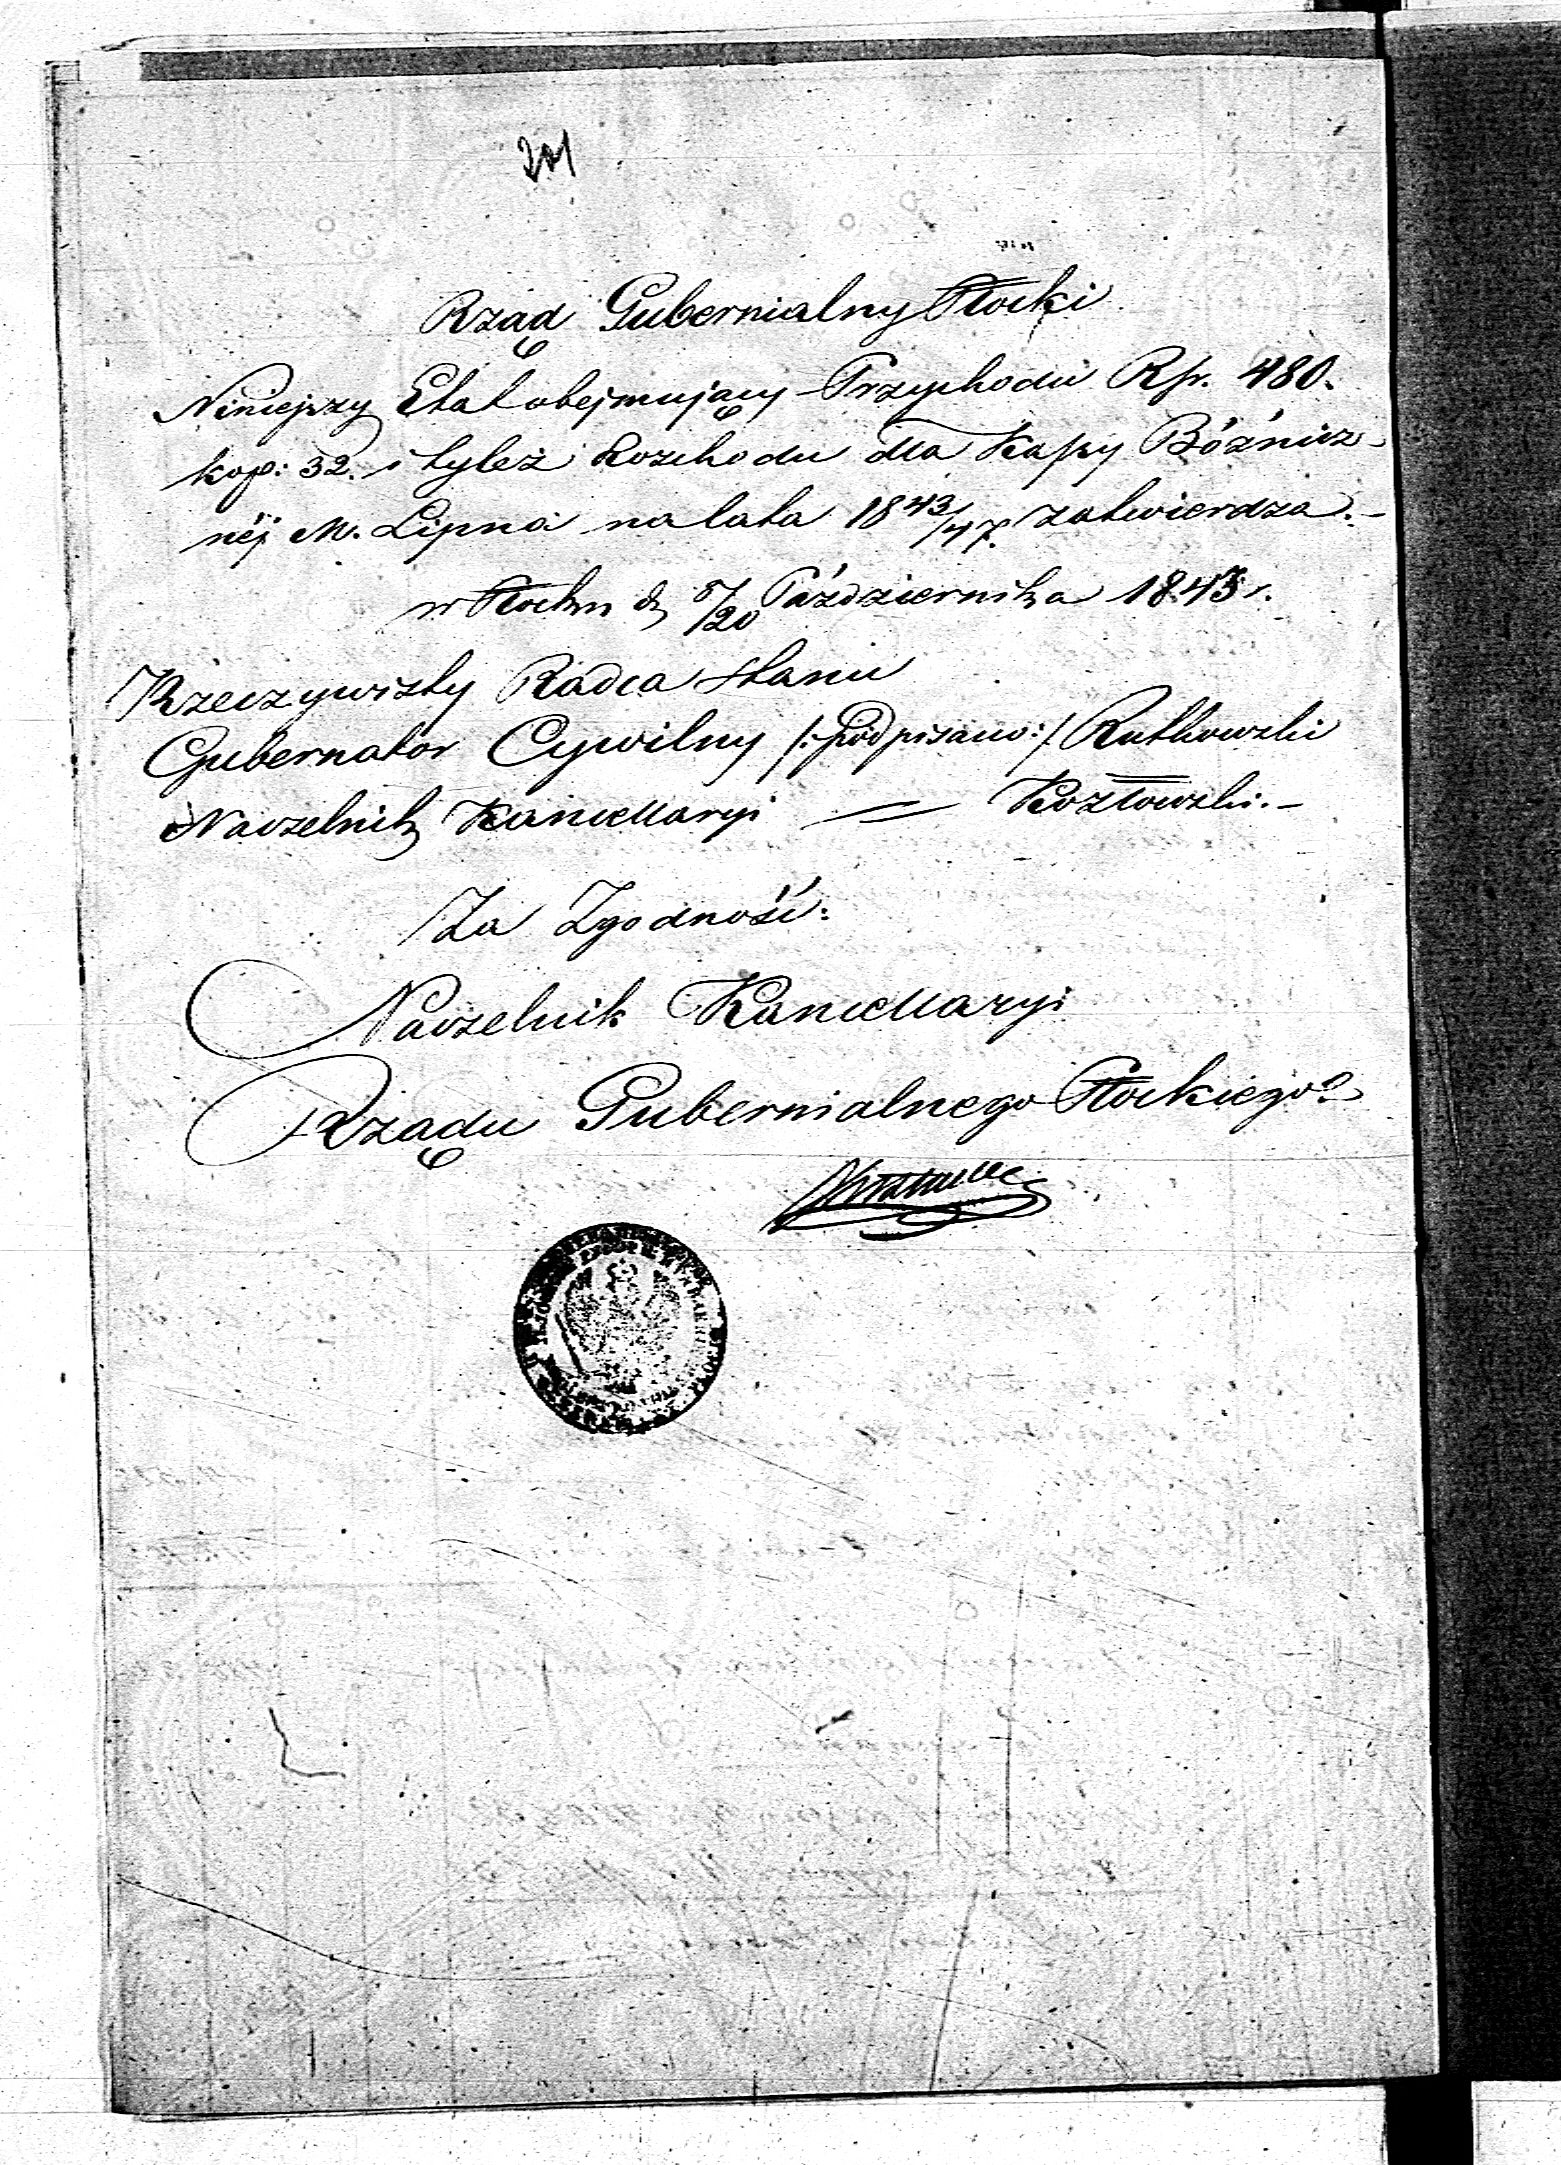 201
Rząd Gubernialny Płocki
Niniejszy Etat obejmujący Przychodu Rsr. 480.
kop: 32. i tyleż Rozchodu dla Kassy Bóżnicz-
néj M. Lipna na lata 1843/47. zatwierdza.-
w Płocku d. 8/20 Października 1843 r.
Rzeczywisty Radca Stanu
Gubernator Cywilny /:podpisano:/ Rutkowski
Naczelnik Kancellaryi = Kozłowski.-
Za Zgodność:
Naczelnik Kancellaryi
Rządu Gubernialnego Płockiego